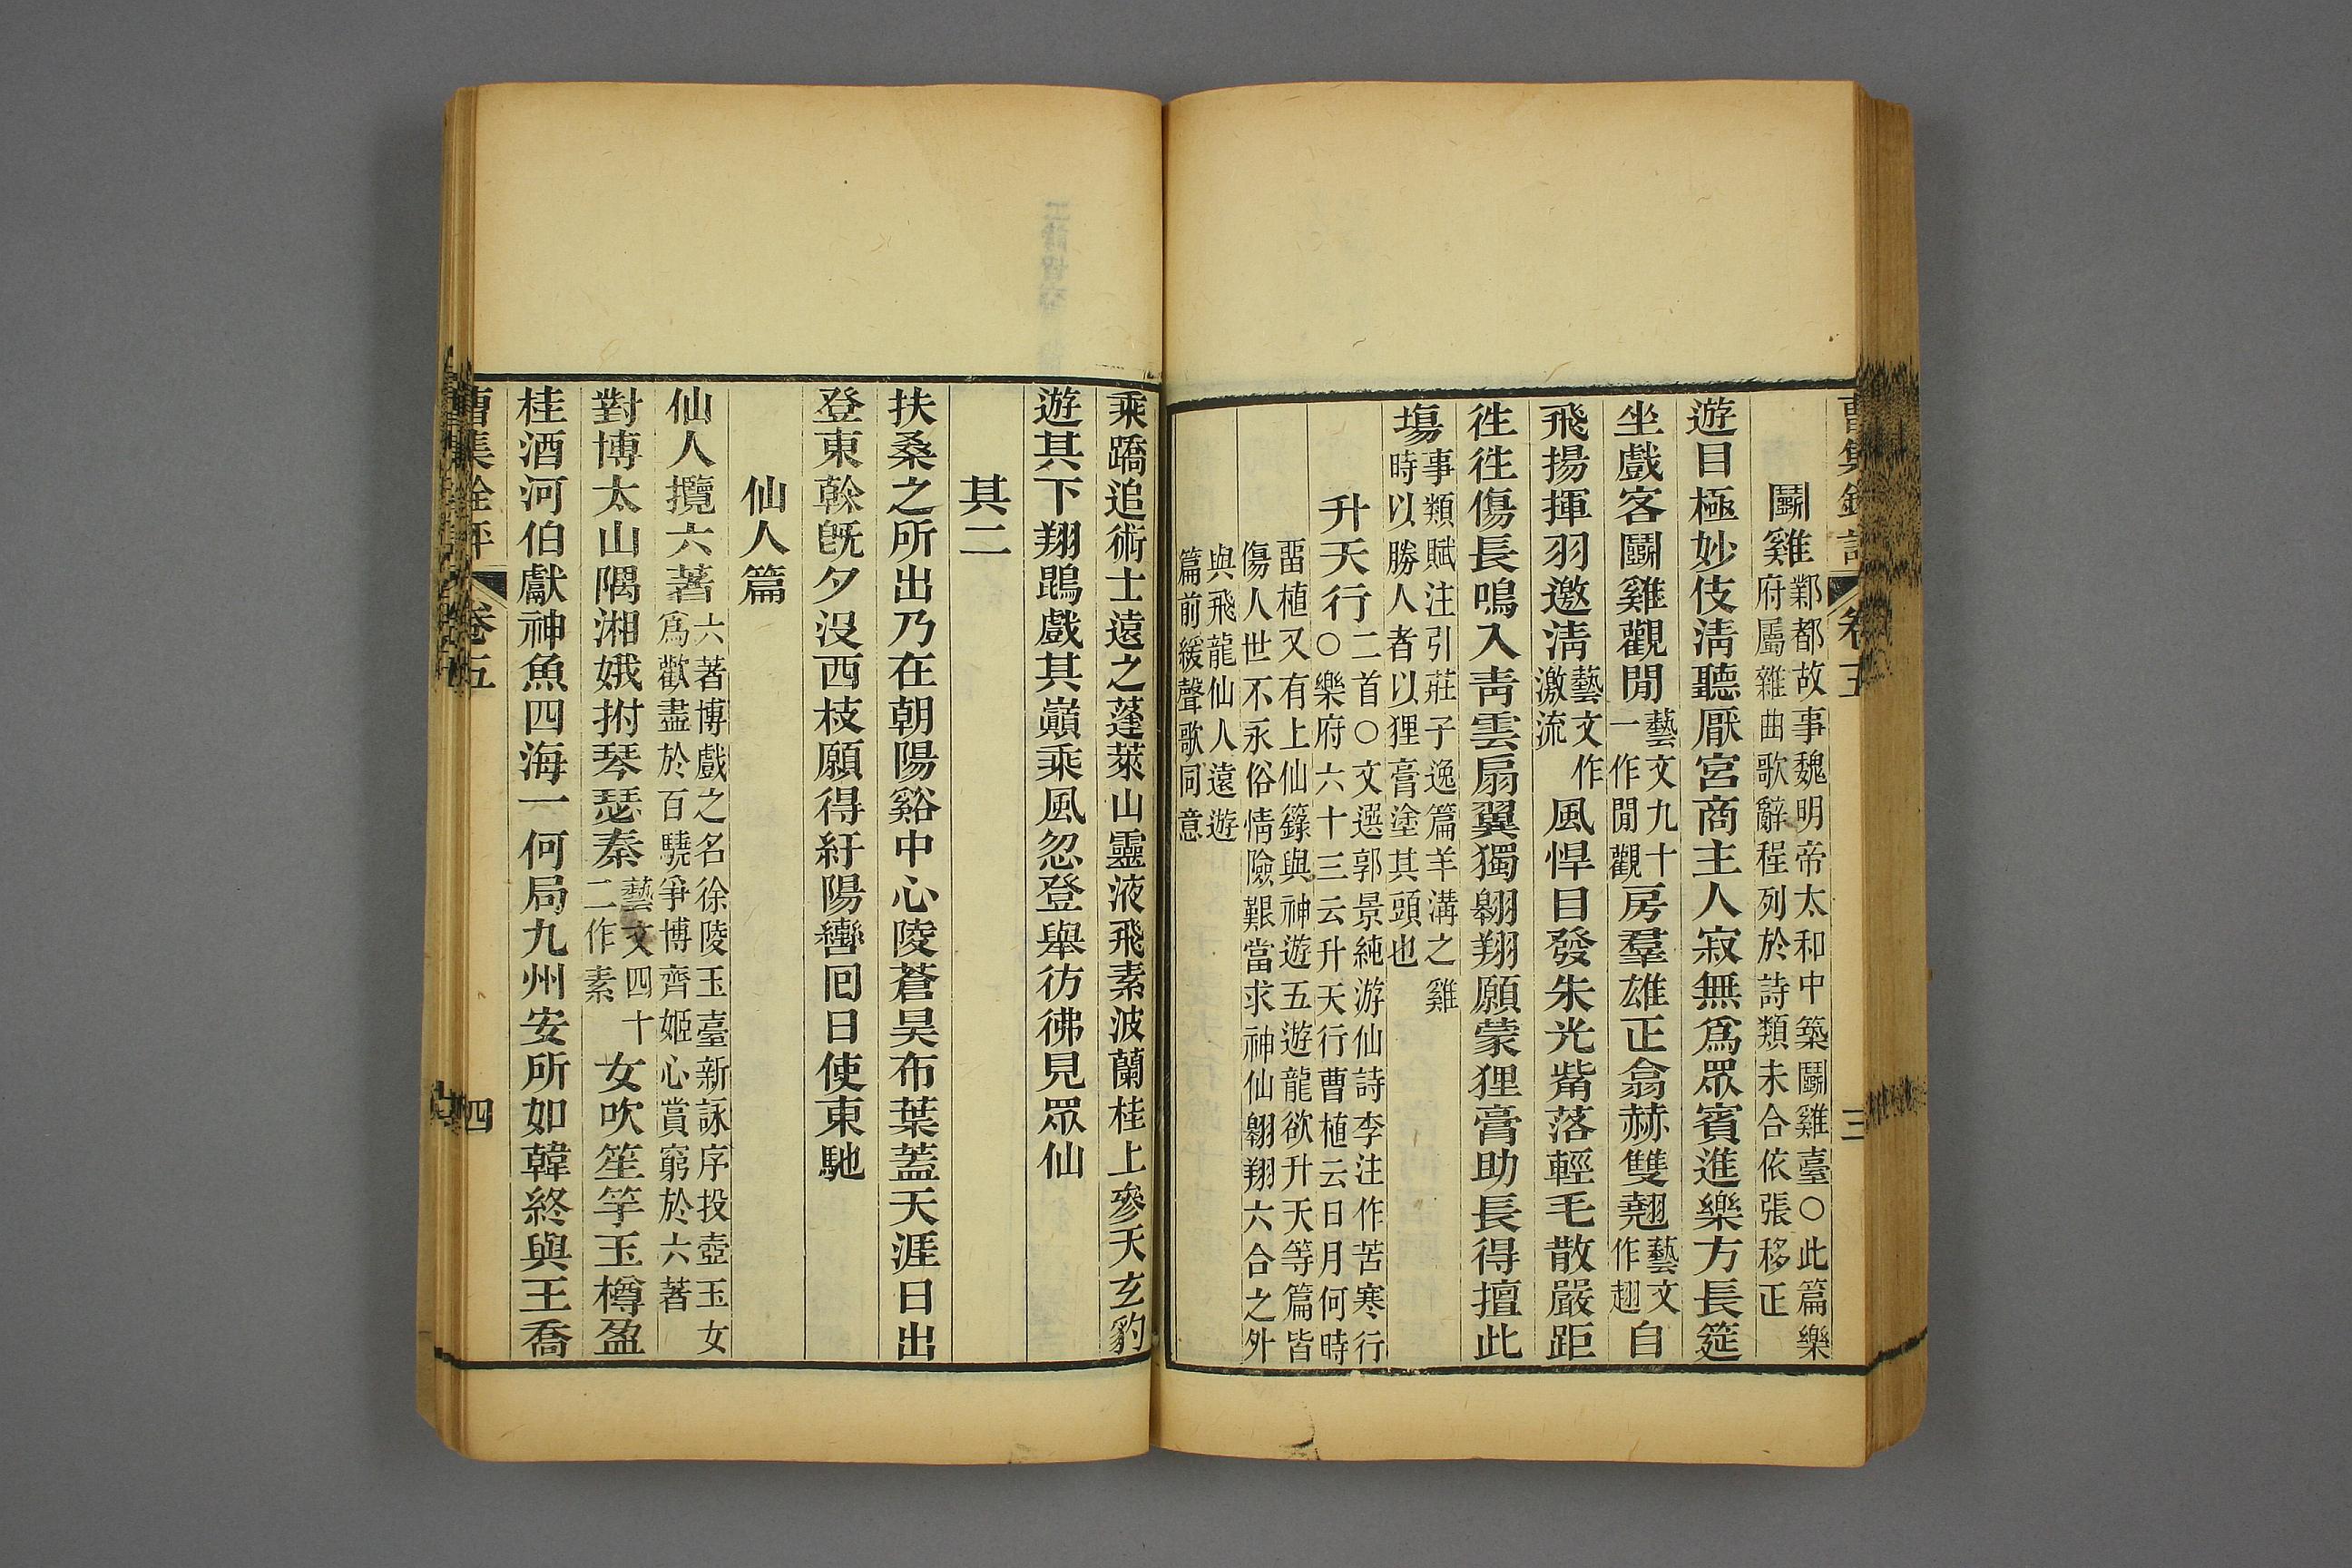 曹集銓評 卷五 三
鬭雞 鄴都故事魏明帝太和中築鬭雞臺○此篇樂府屬雜曲歌辭程列於詩類未合依張移正
遊目極妙伎淸聽厭宮商主人寂無爲眾賓進樂方長筵
坐戲客鬭雞觀閒 藝文九十一作閒觀 房羣雄正翕赫雙翹 藝文作翅 自
飛揚揮羽邀淸 藝文作激流 風悍目發朱光觜落輕毛散嚴距
徃徃傷長鳴入靑雲扇翼獨翱翔願蒙狸膏助長得擅此
塲 事類賦注引莊子逸篇羊溝之雞時以勝人者以狸膏塗其頭也
升天行 二首○文選郭景純游仙詩李注作苦寒行○樂府六十三云升天行曹植云日月何時
畱植又有上仙籙與神遊五遊龍欲升天等篇皆傷人世不永俗情險艱當求神仙翱翔六合之外
與飛龍仙人遠遊篇前緩聲歌同意
乘蹻追術士遠之蓬萊山靈液飛素波蘭桂上參天玄豹
遊其下翔鵾戲其巔乘風忽登舉彷彿見眾仙
其二
扶桑之所出乃在朝陽谿中心陵蒼昊布葉蓋天涯日出
登東榦旣夕沒西枝願得紆陽轡囘日使東馳
仙人篇
仙人攬六著 六著博戲之名徐陵玉臺新詠序投壺玉女爲歡盡於百驍爭博齊姬心賞窮於六著
對博太山隅湘娥拊琴瑟秦 藝文四十二作素 女吹笙竽玉樽盈
桂酒河伯獻神魚四海一何局九州安所如韓終與王喬
曹集銓評 卷五 四